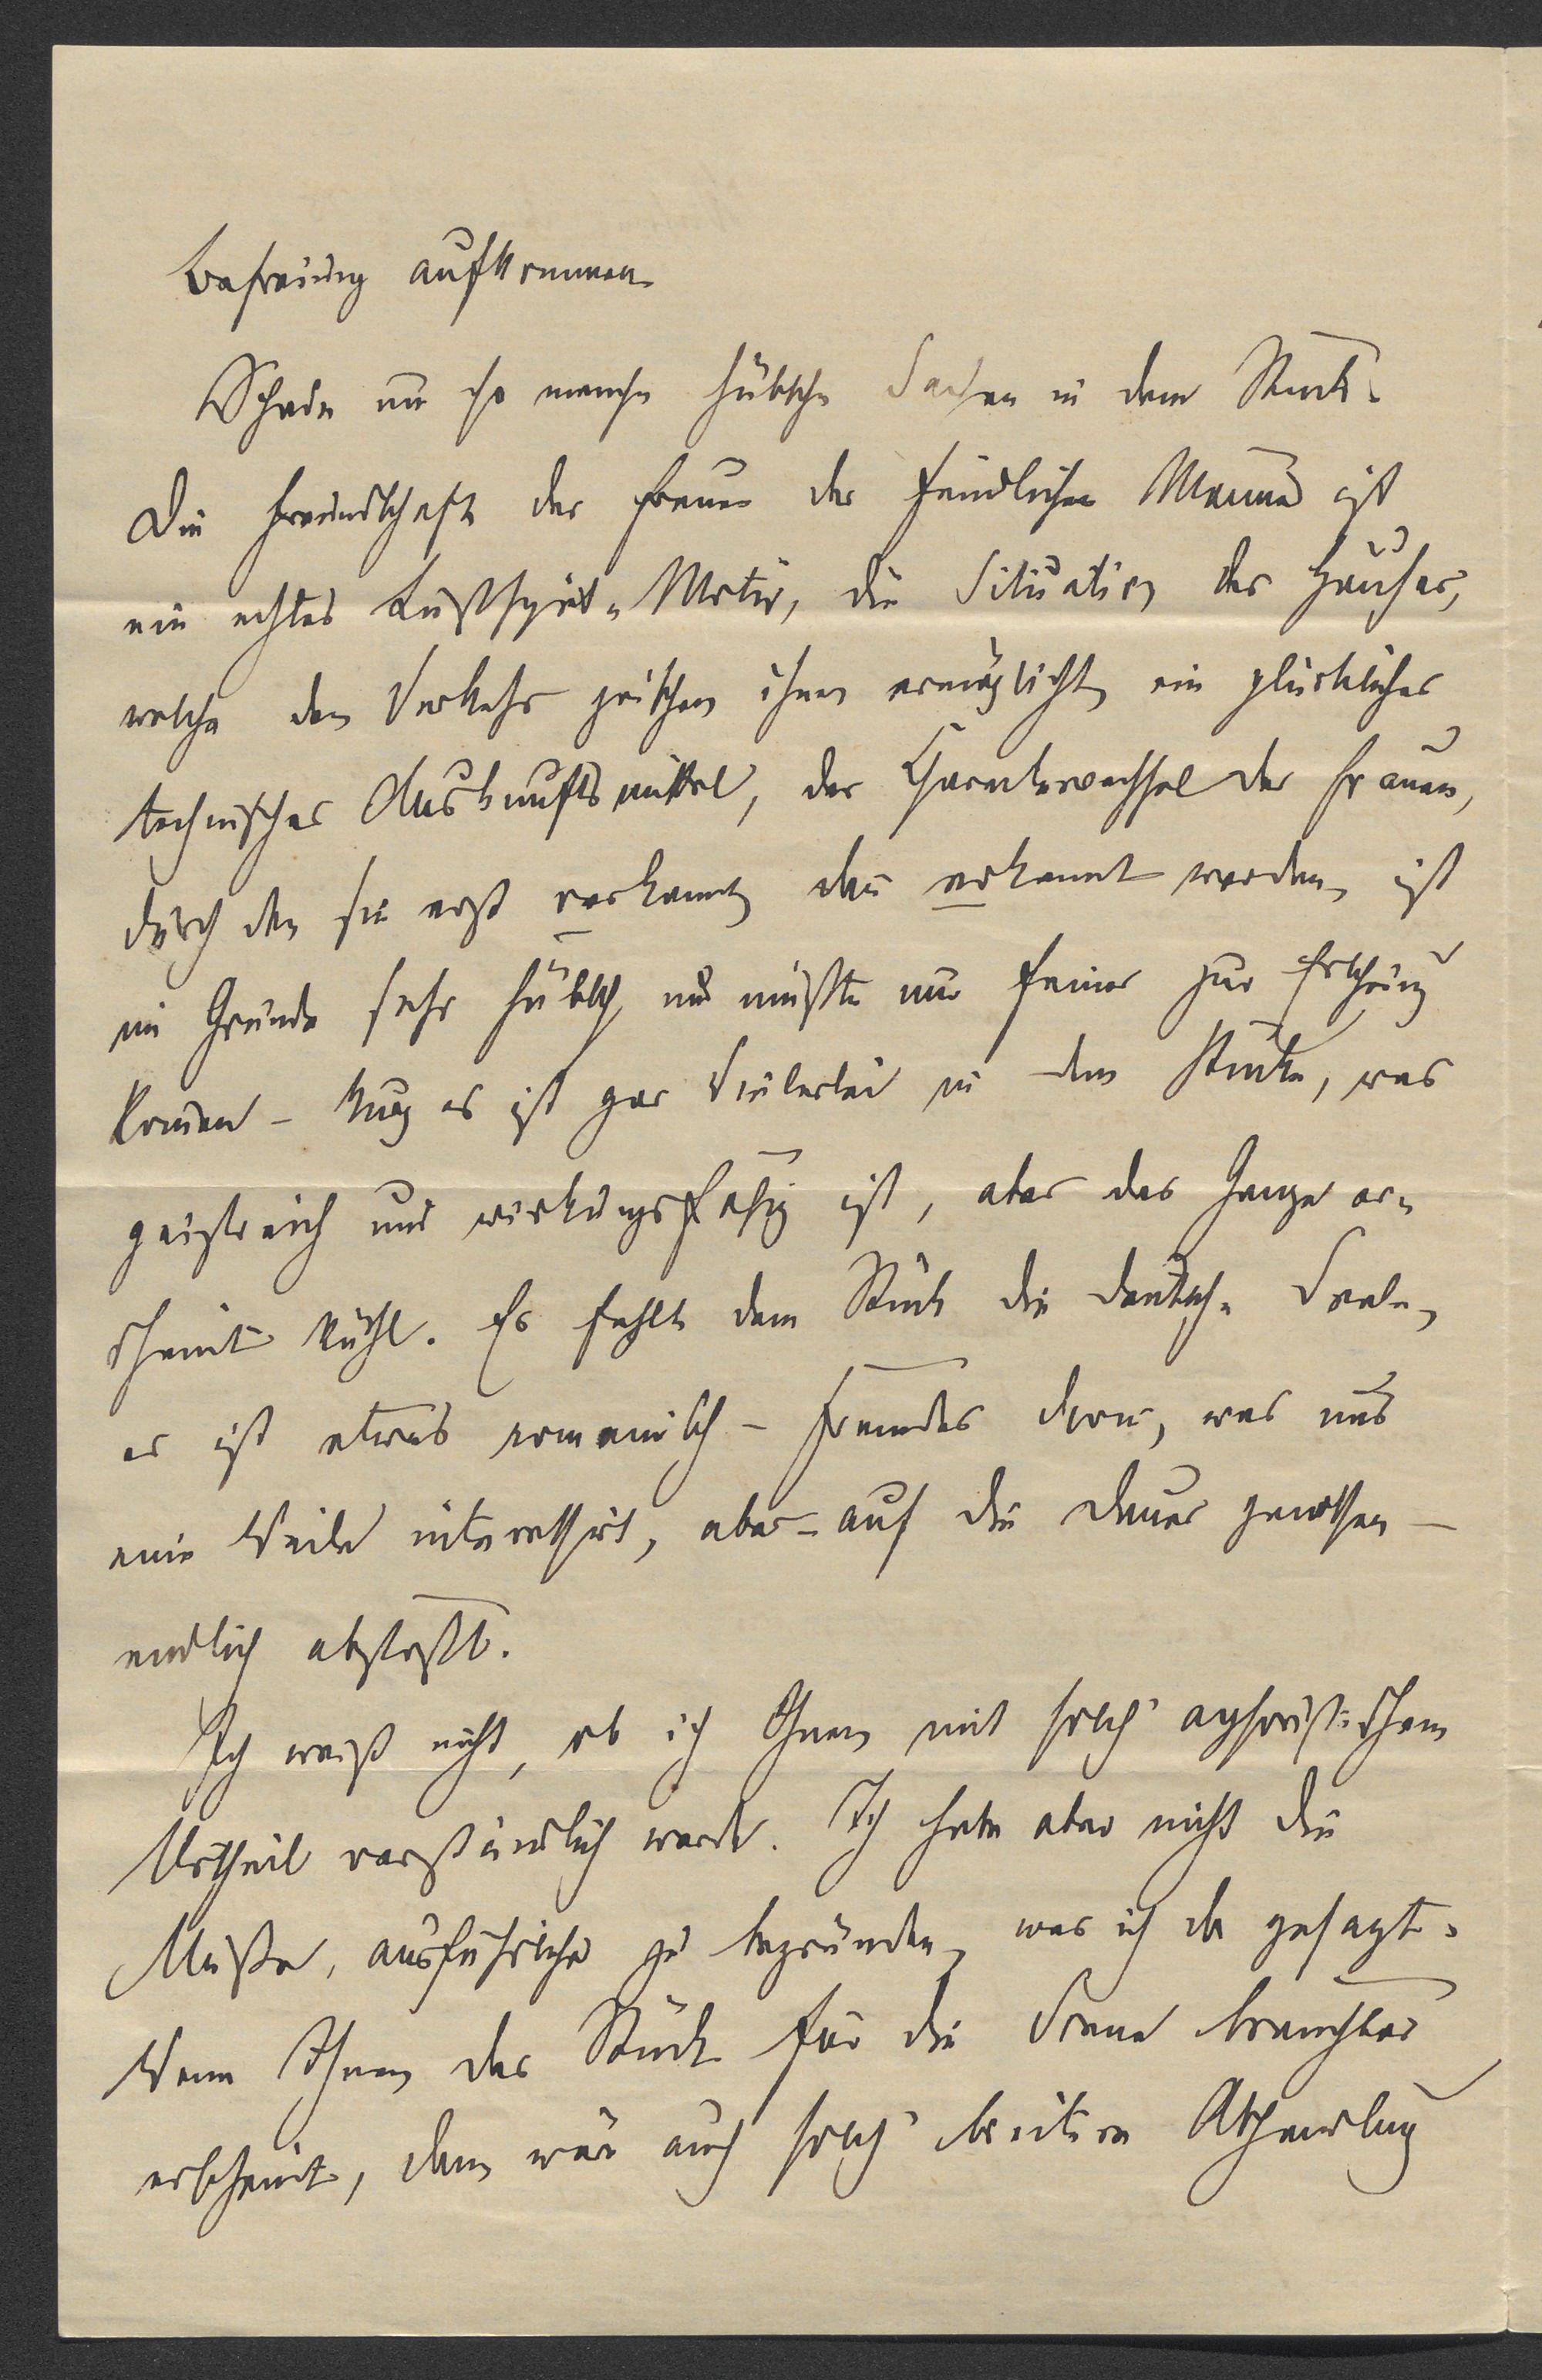 Befreiung aufkommen.
Schade um so manche hübsche Sachen in dem Stück.
Die Freundschaft der Frauen der feindlichen Männer ist
ein echtes Lustspiel-Motiv, die Situation der Häuser,
welche den Verkehr zwischen ihnen ermöglicht, ein glückliches
technisches Auskunftsmittel, der Charakterwechsel der Frauen,
durch den sie erst verkannt, dann erkannt werden, ist
im Grunde sehr hübsch und müßte nur feiner zur Erscheinung
kommen – kurz es ist gar Vielerlei in dem Stücke, was
geistreich und wirkungsfähig ist, aber das Ganze er-
scheint kühl. Es fehlt dem Stück die deutsche Seele,
es ist etwas romanisch-fremdes darin, was uns
eine Weile interessirt, aber – auf die Dauer genossen –
endlich abstoßt.
Ich weiß nicht, ob ich Ihnen mit solch' aphoristischem
Urtheil verständlich werde. Ich habe aber nicht die
Muße, ausführlicher zu begründen, was ich da gesagt.
Wenn Ihnen das Stück für die Scene brauchbar
erscheint, dann wär auch solch' breitere Abhandlung